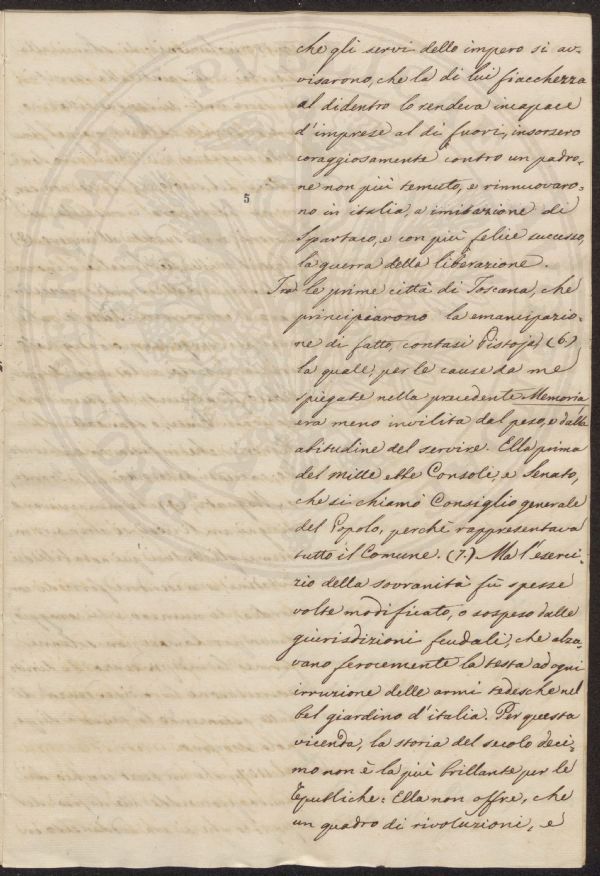 che gli servi dello impero si av-
visarono, che la di lui fiacchezza
al didentro lo rendeva incapace
d'imprese al di fuori, insorsero
coraggiosamente contro un padro-
ne non più temuto, e rinnuovaro-
no in italia, a imitazione di
Spartaco, e con più felice successo,
la guerra della liberazione.
Tra le prime città di Toscana, che
principiarono la emancipazio-
ne di fatto, contasi Pistoja, (6)
la quale, per le cause da me
spiegate nella precedente Memoria
era meno invilita dal peso, e dalla
abitudine del servire. Ella prima
del mille ebbe Console, e Senato,
che si chiamò Consiglio generale
del Popolo, perchè rappresentava
tutto il Comune. (7.) Ma l'eserci-
zio della sovranità fù spesse
volte modificato, o sospeso dalle
giurisdizioni feudali, che alza-
vano ferocemente la testa ad ogni
irruzione delle armi tedesche nel
bel giardino d'italia. Per questa
vicenda, la storia del secolo deci-
mo non è la più brillante per le
Repubbliche: Ella non offre, che
un quadro di rivoluzioni, e
5